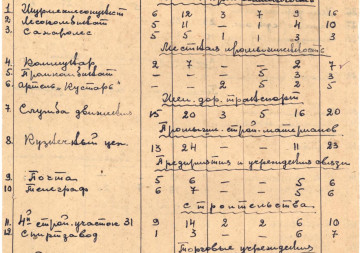 1 6 12 3 7 9 16
2 5 11 – 1 1 10
3. Сахаролес 5 5 1 1 3 3
Местная промышленность
4. 2 7 – – 2 7
5. Промкомбинат – – – 5 3 3
6. Артель „Кустарь" – – 2 5 2 5
Жел. дор. транспорт
7. Служба движения 15 20 3 5 16 20
Промышл. строй. материалов
8. Кузнечный цех. 13 24 – – 11 23
Предприятия и учреждения связи
9. Почта 5 6 – – 5 6
10 Телеграф 6 7 – – 5 6
Строительства
11. 4й строй. участок 31 9 14 2 2 6 10
12. Спиртзавод 1 3 – – 6 7
Торговые учреждения